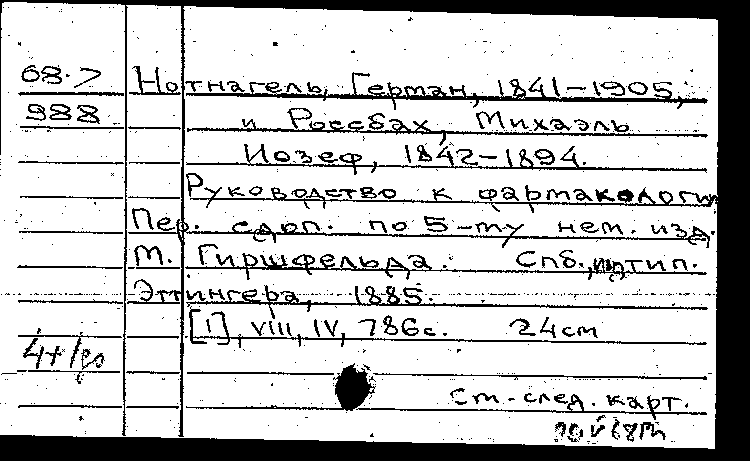 68.7 Нотнагель, Герман, 1841-1905,
988 и Россбах, Михаэль
Иозеф, 1842-1894.
Руководство к фармакологии
Пер. с доп. по 5-му нем. изд.
М. Гиршфельда. Спб., тип.
Эттингера, 1885.
[1], VIII, IV, 786с. 24см
См. след. карт.